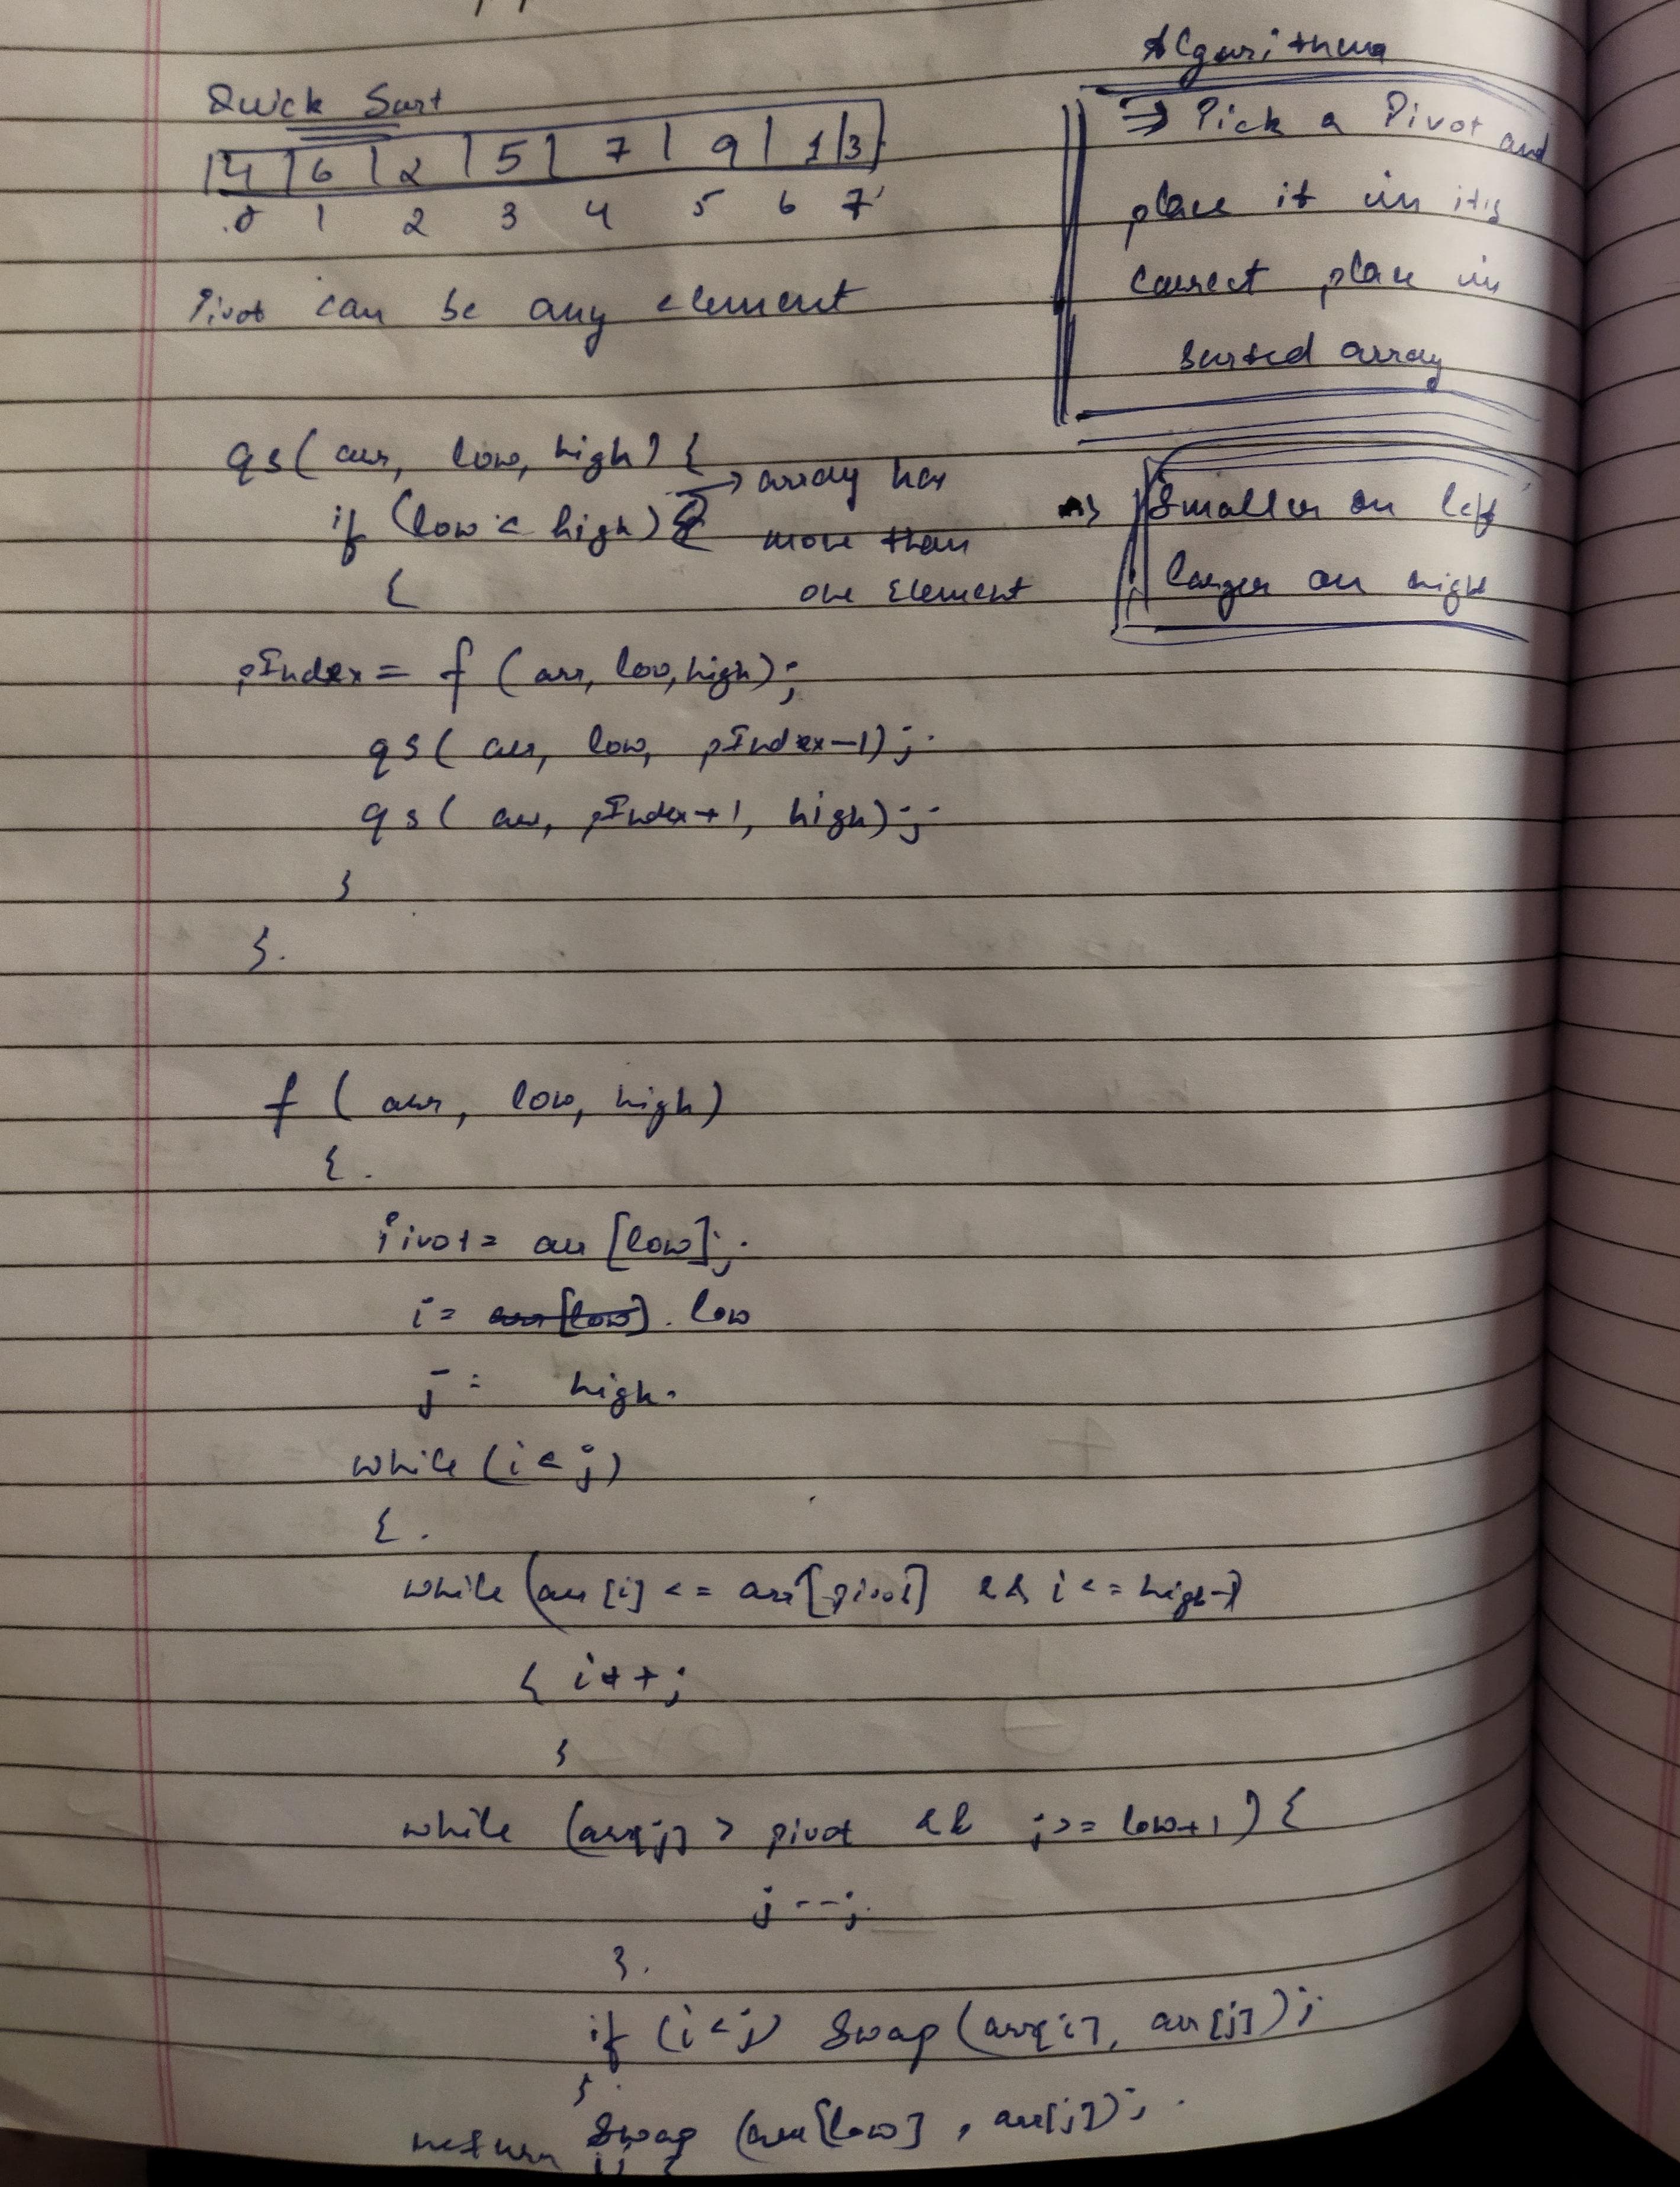 Quick Sort
4 | 6 | 2 | 5 | 7 | 9 | 1 | 3
0 1 2 3 4 5 6 7
Pivot can be any element
Algorithm
⇒ Pick a Pivot and
place it in its
correct place in
sorted array
⇒ Smaller on left
larger on right
qs( arr, low, high) {
if (low < high) → array has
{ more than
one element
pIndex = f (arr, low, high);
qs( arr, low, pIndex-1);
qs( arr, pIndex+1, high);
}
}.
f ( arr, low, high)
{.
pivot = arr [low];
i = arr[low]. low
j = high.
while (i < j)
{.
while (arr [i] <= arr [pivot] && i <= high-1)
{ i++;
}
while (arr[j] > pivot && j >= low+1) {
j--;
}.
if (i < j) Swap (arr[i], arr[j]);
}.
Swap (arr[low], arr[j]);
return j; }